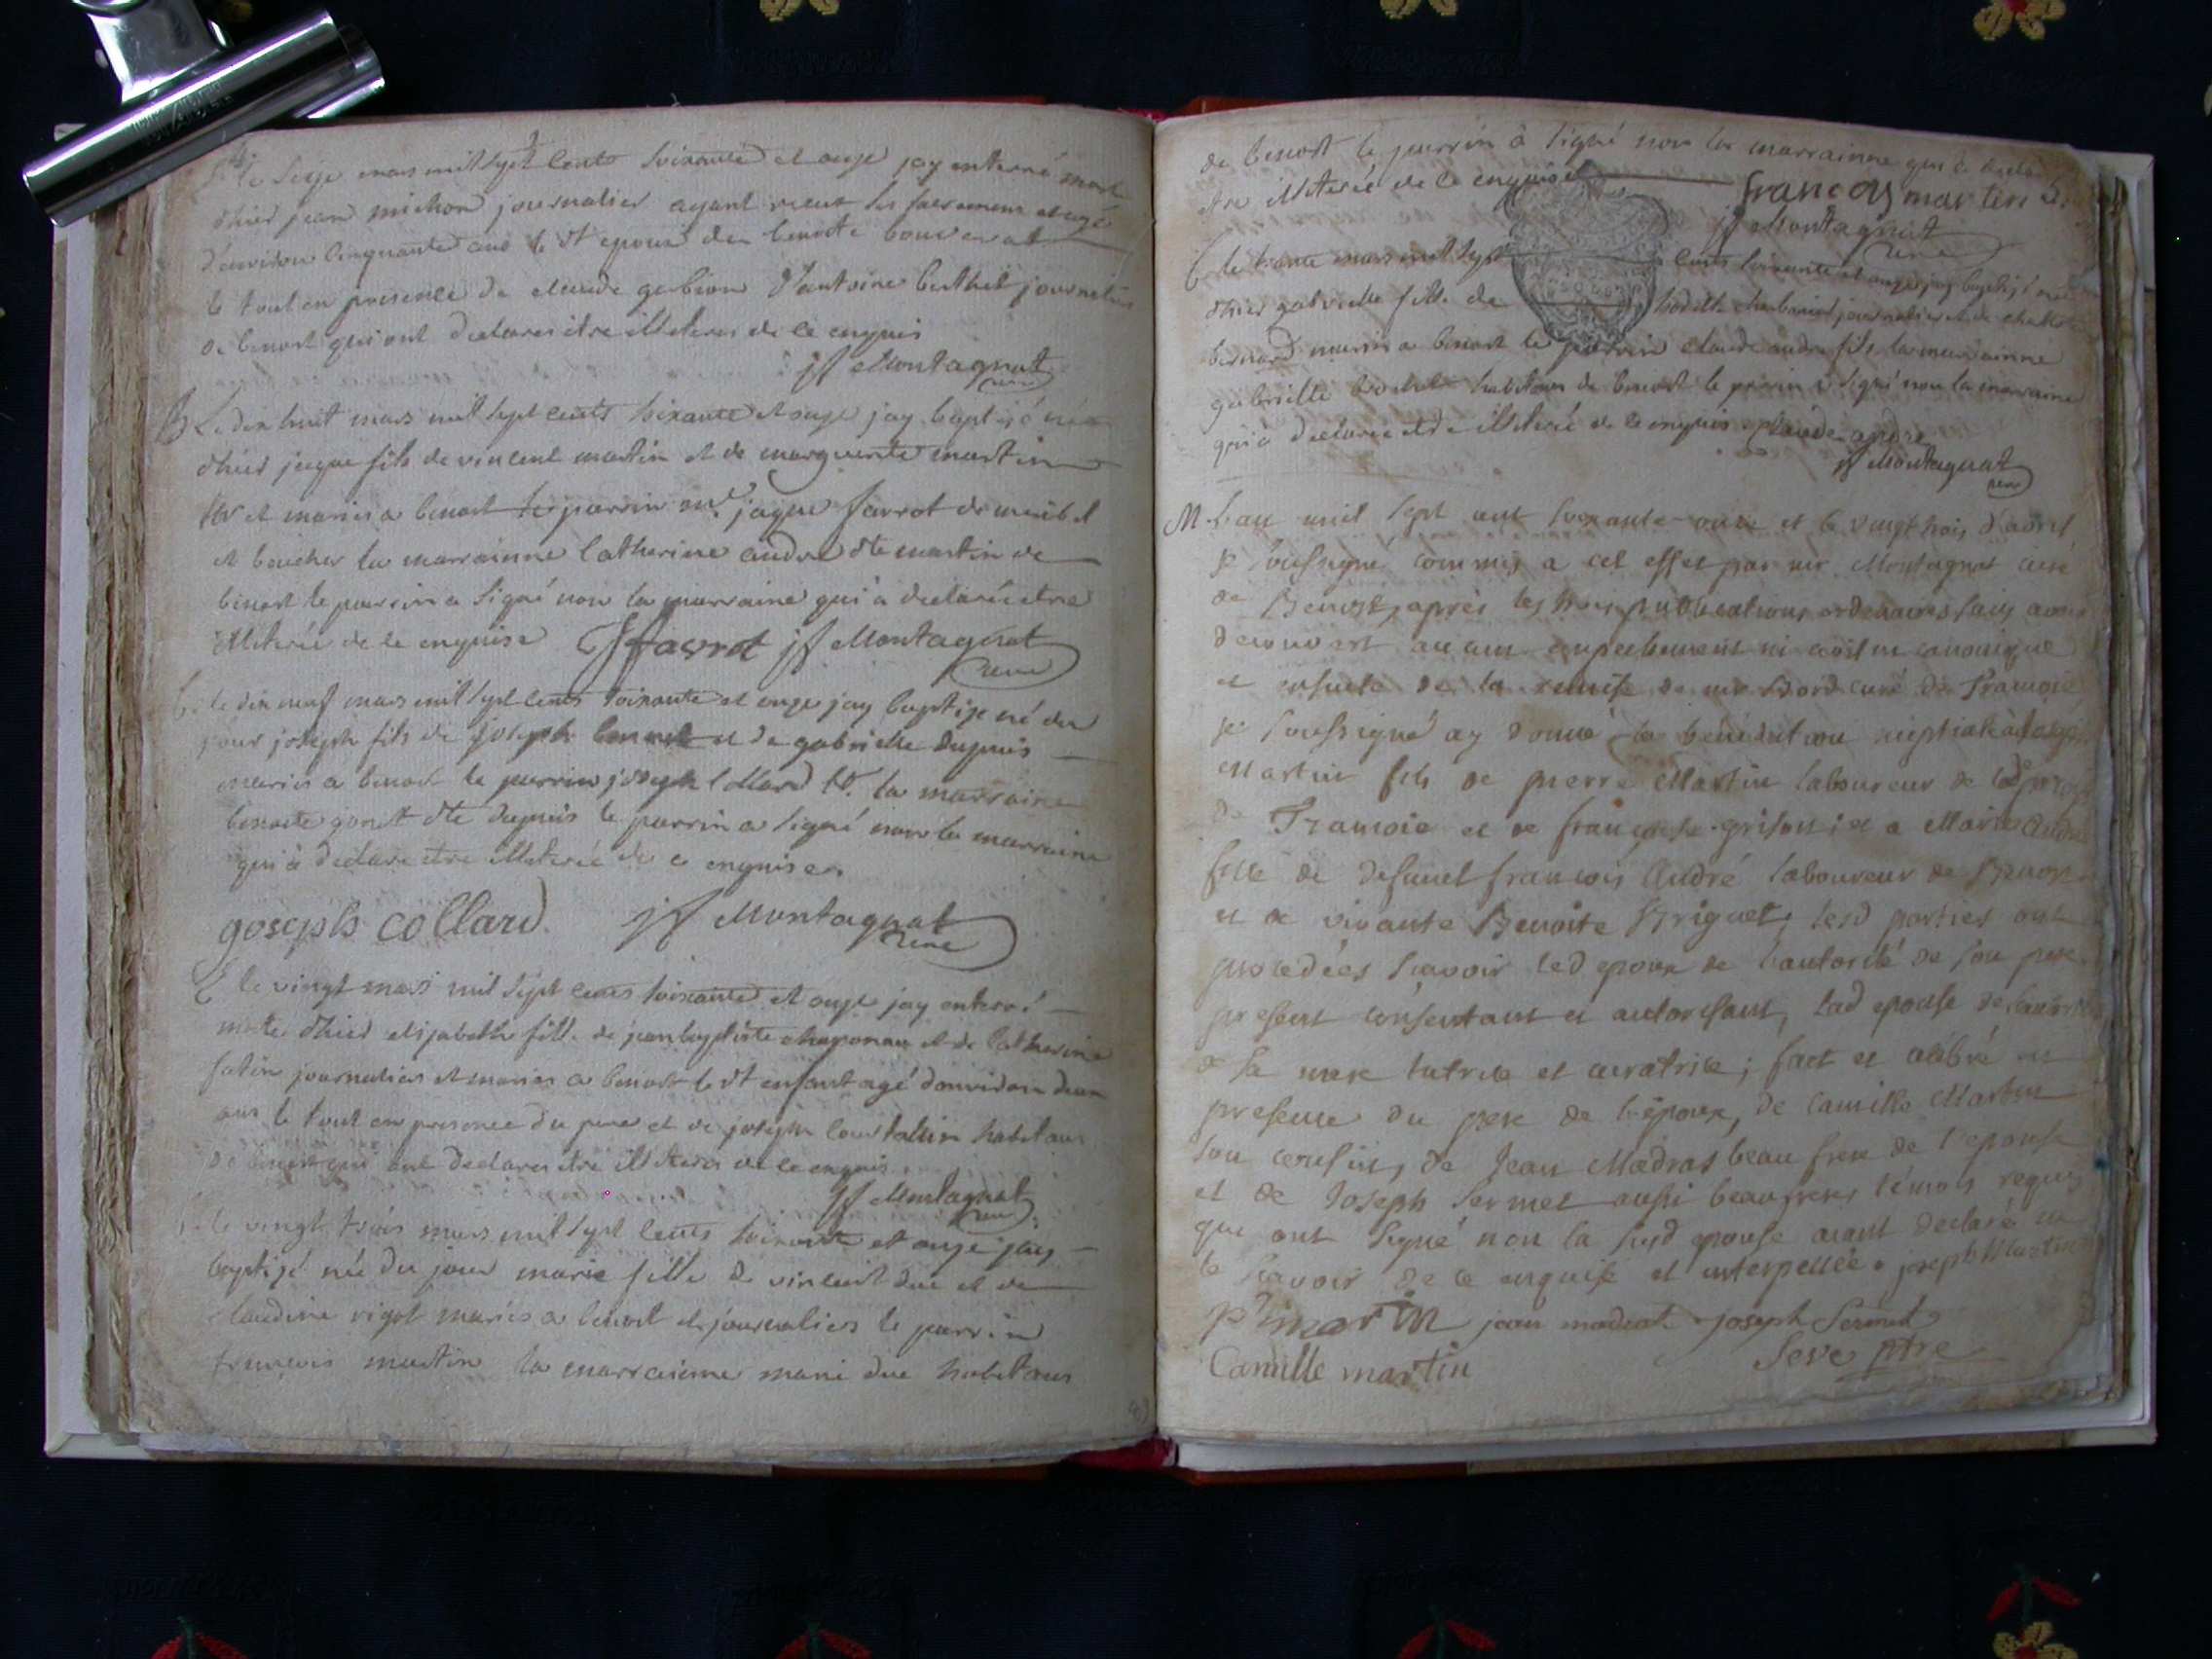 le seize mars mil sept cents soixante et onze jay enterré mort
d'hier jean michon journalier ayant reçut les sacremens et agé
d'environ cinquante ans le dt epoux de benoite bouverat
le tout en presence de claude gerbion d'antoine berthet journaliers
de benost qui ont declarer etre illiteres de ce enquis
jf Montagnat
cure
B Le dix huit mars mil sept cents soixante et onze jay baptisé né
d'hier jaque fils de vincent martin et de marguerite martin
et mariés a benost le parrin mr jaque favrot de
et boucher la marrainne Catherine andré dte martin de
benost le parrin a signé non la marraine qui à declarée etre
illiterée de ce enquise Jfavrot jf Montagnat
cure
b. le dix neuf mars mil sept cents soixante et onze jay baptise né du
jour joseph fils de joseph et de gabrielle dupuis
mariés a benost le parrin joseph Collard la marraine
benoite gonet dte dupuis le parrin a signé non la marraine
qui à declare etre illiterée de ce enquise.
joseph collard jf Montagnat
cure
E le vingt mars mil sept cents soixante et onze jay enterré
morte d'hier elizabeth fille de jean baptiste chaponau et de Catherine
fatin journaliers et mariés a benost le dt enfant agé d'environ deux
ans le tout en presence du pere et de joseph habitans
de benost qui ont declarer etre illiteres de ce enquis
jf Montagnat
cure
b. le vingt trois mars mil sept cents soixante et onze jay
baptisé née du jour marie fille de vincent duc et de
claudine rigot mariés a benost et journaliers le parrin
françois martin la marrainne marie duc habitans
de benost le parrin à signé non la marrainne qui à declaré
etre illiterée de ce enquise françois martin
jf Montagnat
cure
b le trante mars mil sept cents soixante et onze jay baptisé née
d'hier gabrielle fille de journalier et de
bernard mariés a benost le parrin claude andre fils la marrainne
gabrielle habitans de benost le parrin à signé non la marraine
qui à declarée etre illiterée de ce enquis claude andre
jf Montagnat
cure
M. L'an mil sept cent soixante-onze et le vingt trois d'avril
je soussigné commis a cet effet par mr Montagnat curé
de Benost, après les trois publications ordinaires sans avoir
decouvert aucun empechement ni civil ni canonique
et ensuite de la remise de mr curé de Tramoie
je soussigné ay donné la bénédiction nuptiale à joseph
Martin fils de pierre Martin laboureur de lad paroisse
de Tramoie et de françoise grison; et a Marie André
fille de defunct françois André laboureur de Benost
et de vivante Benoite Briguet, lesd parties ont
procédées sçavoir led epoux de l'autorité de son pere
present consentant et autorisant, lad epouse de l'autorité
de sa mere tutrice et curatrice; fait et célébré en
presence du pere de l'époux, de Camille Martin
son cousin, de Jean Madras beau frere de l'epouse
et de Joseph Sermet aussi beaufrere, témoins requis
qui ont signé non la susd epouse aiant declaré ne
le sçavoir de ce enquise et interpellée. joseph Martin
martin jean madras joseph Sermet
Camille martin Seve ptre